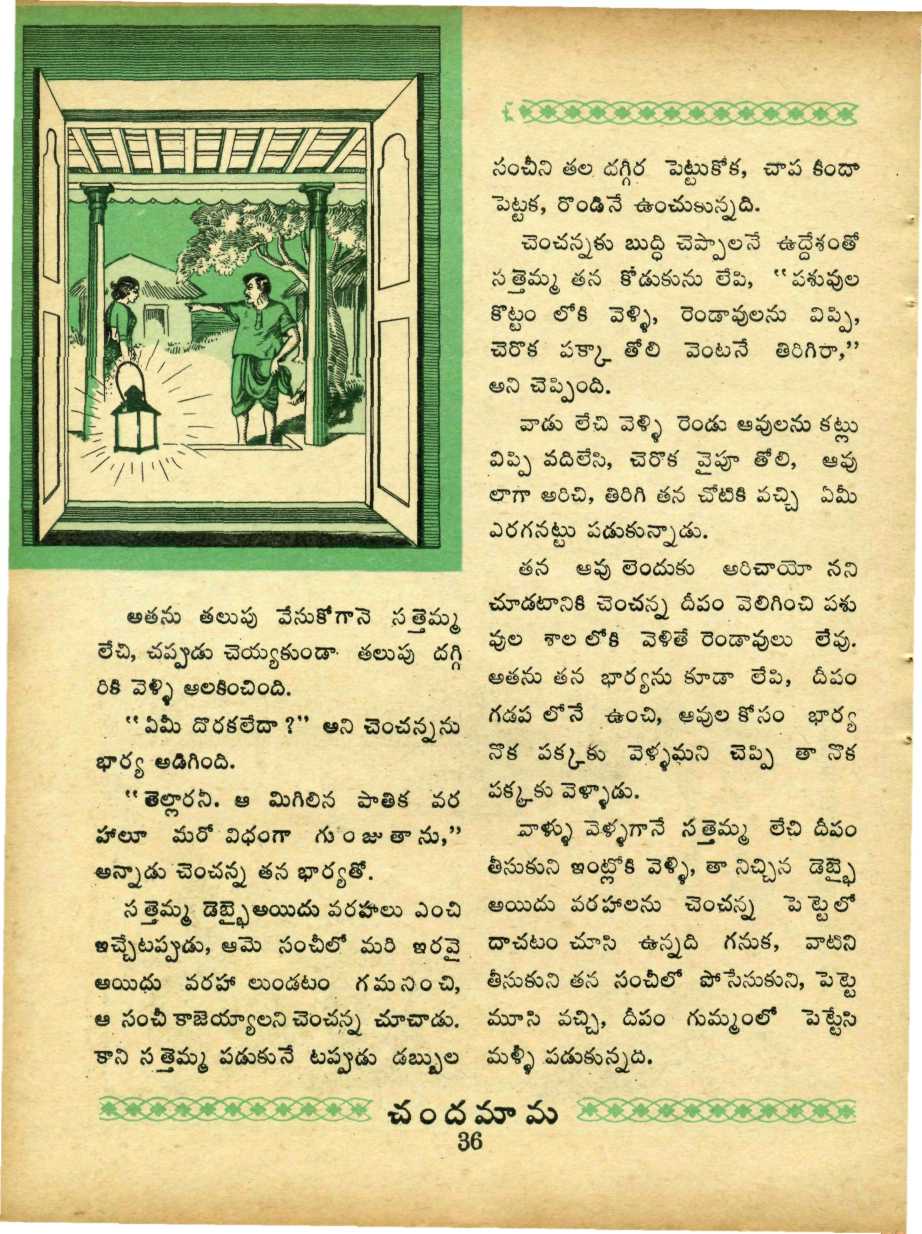 అతను తలుపు వేసుకోగానె సత్తెమ్మ
లేచి, చప్పుడు చెయ్యకుండా తలుపు దగ్గి
రికి వెళ్ళి ఆలకించింది.
“ఏమీ దొరకలేదా?” అని చెంచన్నను
భార్య అడిగింది.
“తెల్లారనీ. ఆ మిగిలిన పాతిక వర
హాలూ మరో విధంగా గుంజుతాను,”
అన్నాడు చెంచన్న తన భార్యతో.
సత్తెమ్మ డెబ్భైఅయిదు వరహాలు ఎంచి
ఇచ్చేటప్పుడు, ఆమె సంచీలో మరి ఇరవై
అయిదు వరహా లుండటం గమనించి,
ఆ సంచీ కాజెయ్యాలని చెంచన్న చూచాడు.
కాని సత్తెమ్మ పడుకునే టప్పుడు డబ్బుల
సంచీని తల దగ్గిర పెట్టుకోక, చాప కిందా
పెట్టక, రొండినే ఉంచుకున్నది.
చెంచన్నకు బుద్ధి చెప్పాలనే ఉద్దేశంతో
సత్తెమ్మ తన కోడుకును లేపి, “పశువుల
కొట్టం లోకి వెళ్ళి, రెండావులను విప్పి,
చెరొక పక్కా తోలి వెంటనే తిరిగిరా,”
అని చెప్పింది.
వాడు లేచి వెళ్ళి రెండు ఆవులను కట్లు
విప్పి వదిలేసి, చెరొక వైపూ తోలి, ఆవు
లాగా అరిచి, తిరిగి తన చోటికి వచ్చి ఏమీ
ఎరగనట్టు పడుకున్నాడు.
తన ఆవు లెందుకు అరిచాయో నని
చూడటానికి చెంచన్న దీపం వెలిగించి పశు
వుల శాల లోకి వెళితే రెండావులు లేవు.
అతను తన భార్యను కూడా లేపి, దీపం
గడప లోనే ఉంచి, ఆవుల కోసం భార్య
నొక పక్కకు వెళ్ళమని చెప్పి తా నొక
పక్కకు వెళ్ళాడు.
వాళ్ళు వెళ్ళగానే సత్తెమ్మ లేచి దీపం
తీసుకుని ఇంట్లోకి వెళ్ళి, తా నిచ్చిన డెబ్భై
అయిదు వరహాలను చెంచన్న పెట్టెలో
దాచటం చూసి ఉన్నది గనుక, వాటిని
తీసుకుని తన సంచీలో పోసేసుకుని, పెట్టె
మూసి వచ్చి, దీపం గుమ్మంలో పెట్టేసి
మళ్ళీ పడుకున్నది.
చందమామ
36